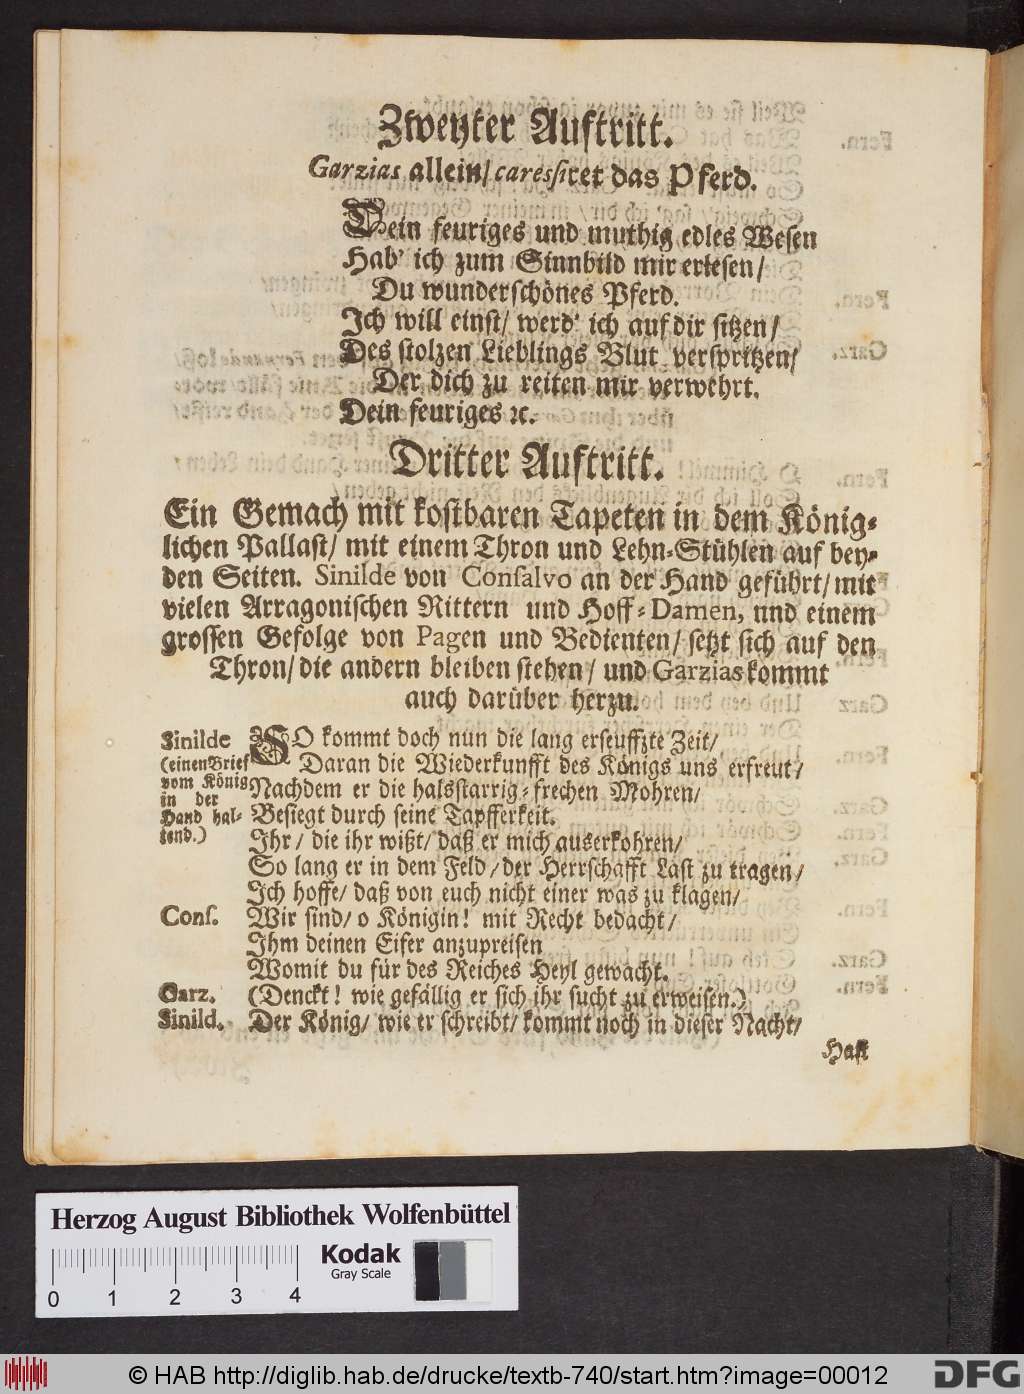 Zweyter Auftritt.
Garzias allein/ caressiret das Pferd.
Dein feuriges und muthig edles Wesen
Hab' ich zum Sinnbild mir erlesen/
Du wunderschönes Pferd.
Ich will einst/ werd' ich auf dir sitzen/
Des stolzen Lieblings Blut verspritzen/
Der dich zu reiten mir verwehrt.
Dein feuriges ꝛc.
Dritter Auftritt.
Ein Gemach mit kostbaren Tapeten in dem König-
lichen Pallast/ mit einem Thron und Lehn-Stühlen auf bey-
den Seiten. Sinilde von Consalvo an der Hand geführt/ mit
vielen Arragonischen Rittern und Hoff-Damen, und einem
grossen Gefolge von Pagen und Bedienten/ setzt sich auf den
Thron/ die andern bleiben stehen/ und Garzias kommt
auch darüber herzu.
Sinilde
(einen Brief
vom König
in der
Hand hal-
tend.)
SO kommt doch nun die lang erseuffzte Zeit/
Daran die Wiederkunfft des Königs uns erfreut/
Nachdem er die halsstarrig-frechen Mohren/
Besiegt durch seine Tapfferkeit.
Ihr/ die ihr wißt/ daß er mich auserkohren/
So lang er in dem Feld/ der Herrschafft Last zu tragen/
Ich hoffe/ daß von euch nicht einer was zu klagen/
Cons. Wir sind/ o Königin! mit Recht bedacht/
Ihm deinen Eifer anzupreisen
Womit du für des Reiches Heyl gewacht.
Garz. (Denckt! wie gefällig er sich ihr sucht zu erweisen.)
Sinild. Der König/ wie er schreibt/ kommt noch in dieser Nacht/
Hast
Herzog August Bibliothek Wolfenbüttel
Kodak
Gray Scale
0 1 2 3 4
© HAB http://diglib.hab.de/drucke/textb-740/start.htm?image=00012
DFG